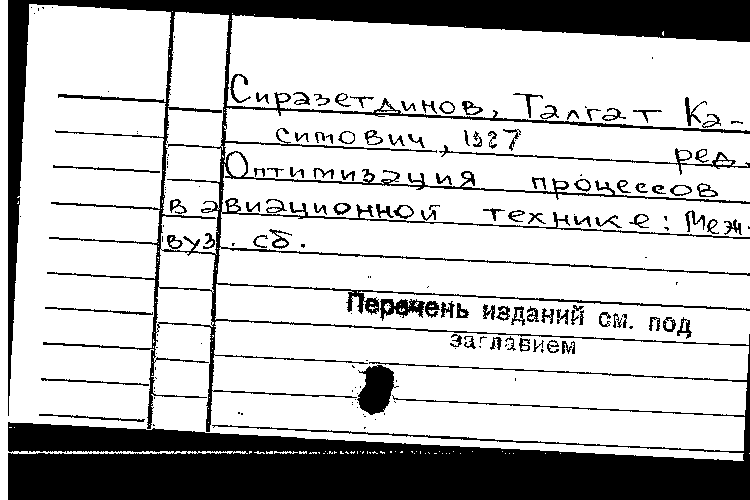 Сиразетдинов, Талгат Ка-
симович, 1927 ред.
Оптимизация процессов
в авиационной технике: Меж-
вуз. сб.
Перечень изданий см. под
заглавием